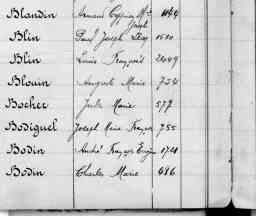 Blandin Armand Cyprien Mie
Joseph
Blin Paul Joseph 1530
Blin Louis François 2449
Blouin Auguste Marie 734
Bocher Jules Marie 577
Bodiguel Joseph Marie Franço 755
Bodin André Franço Eugène
Bodin Charles Marie 486